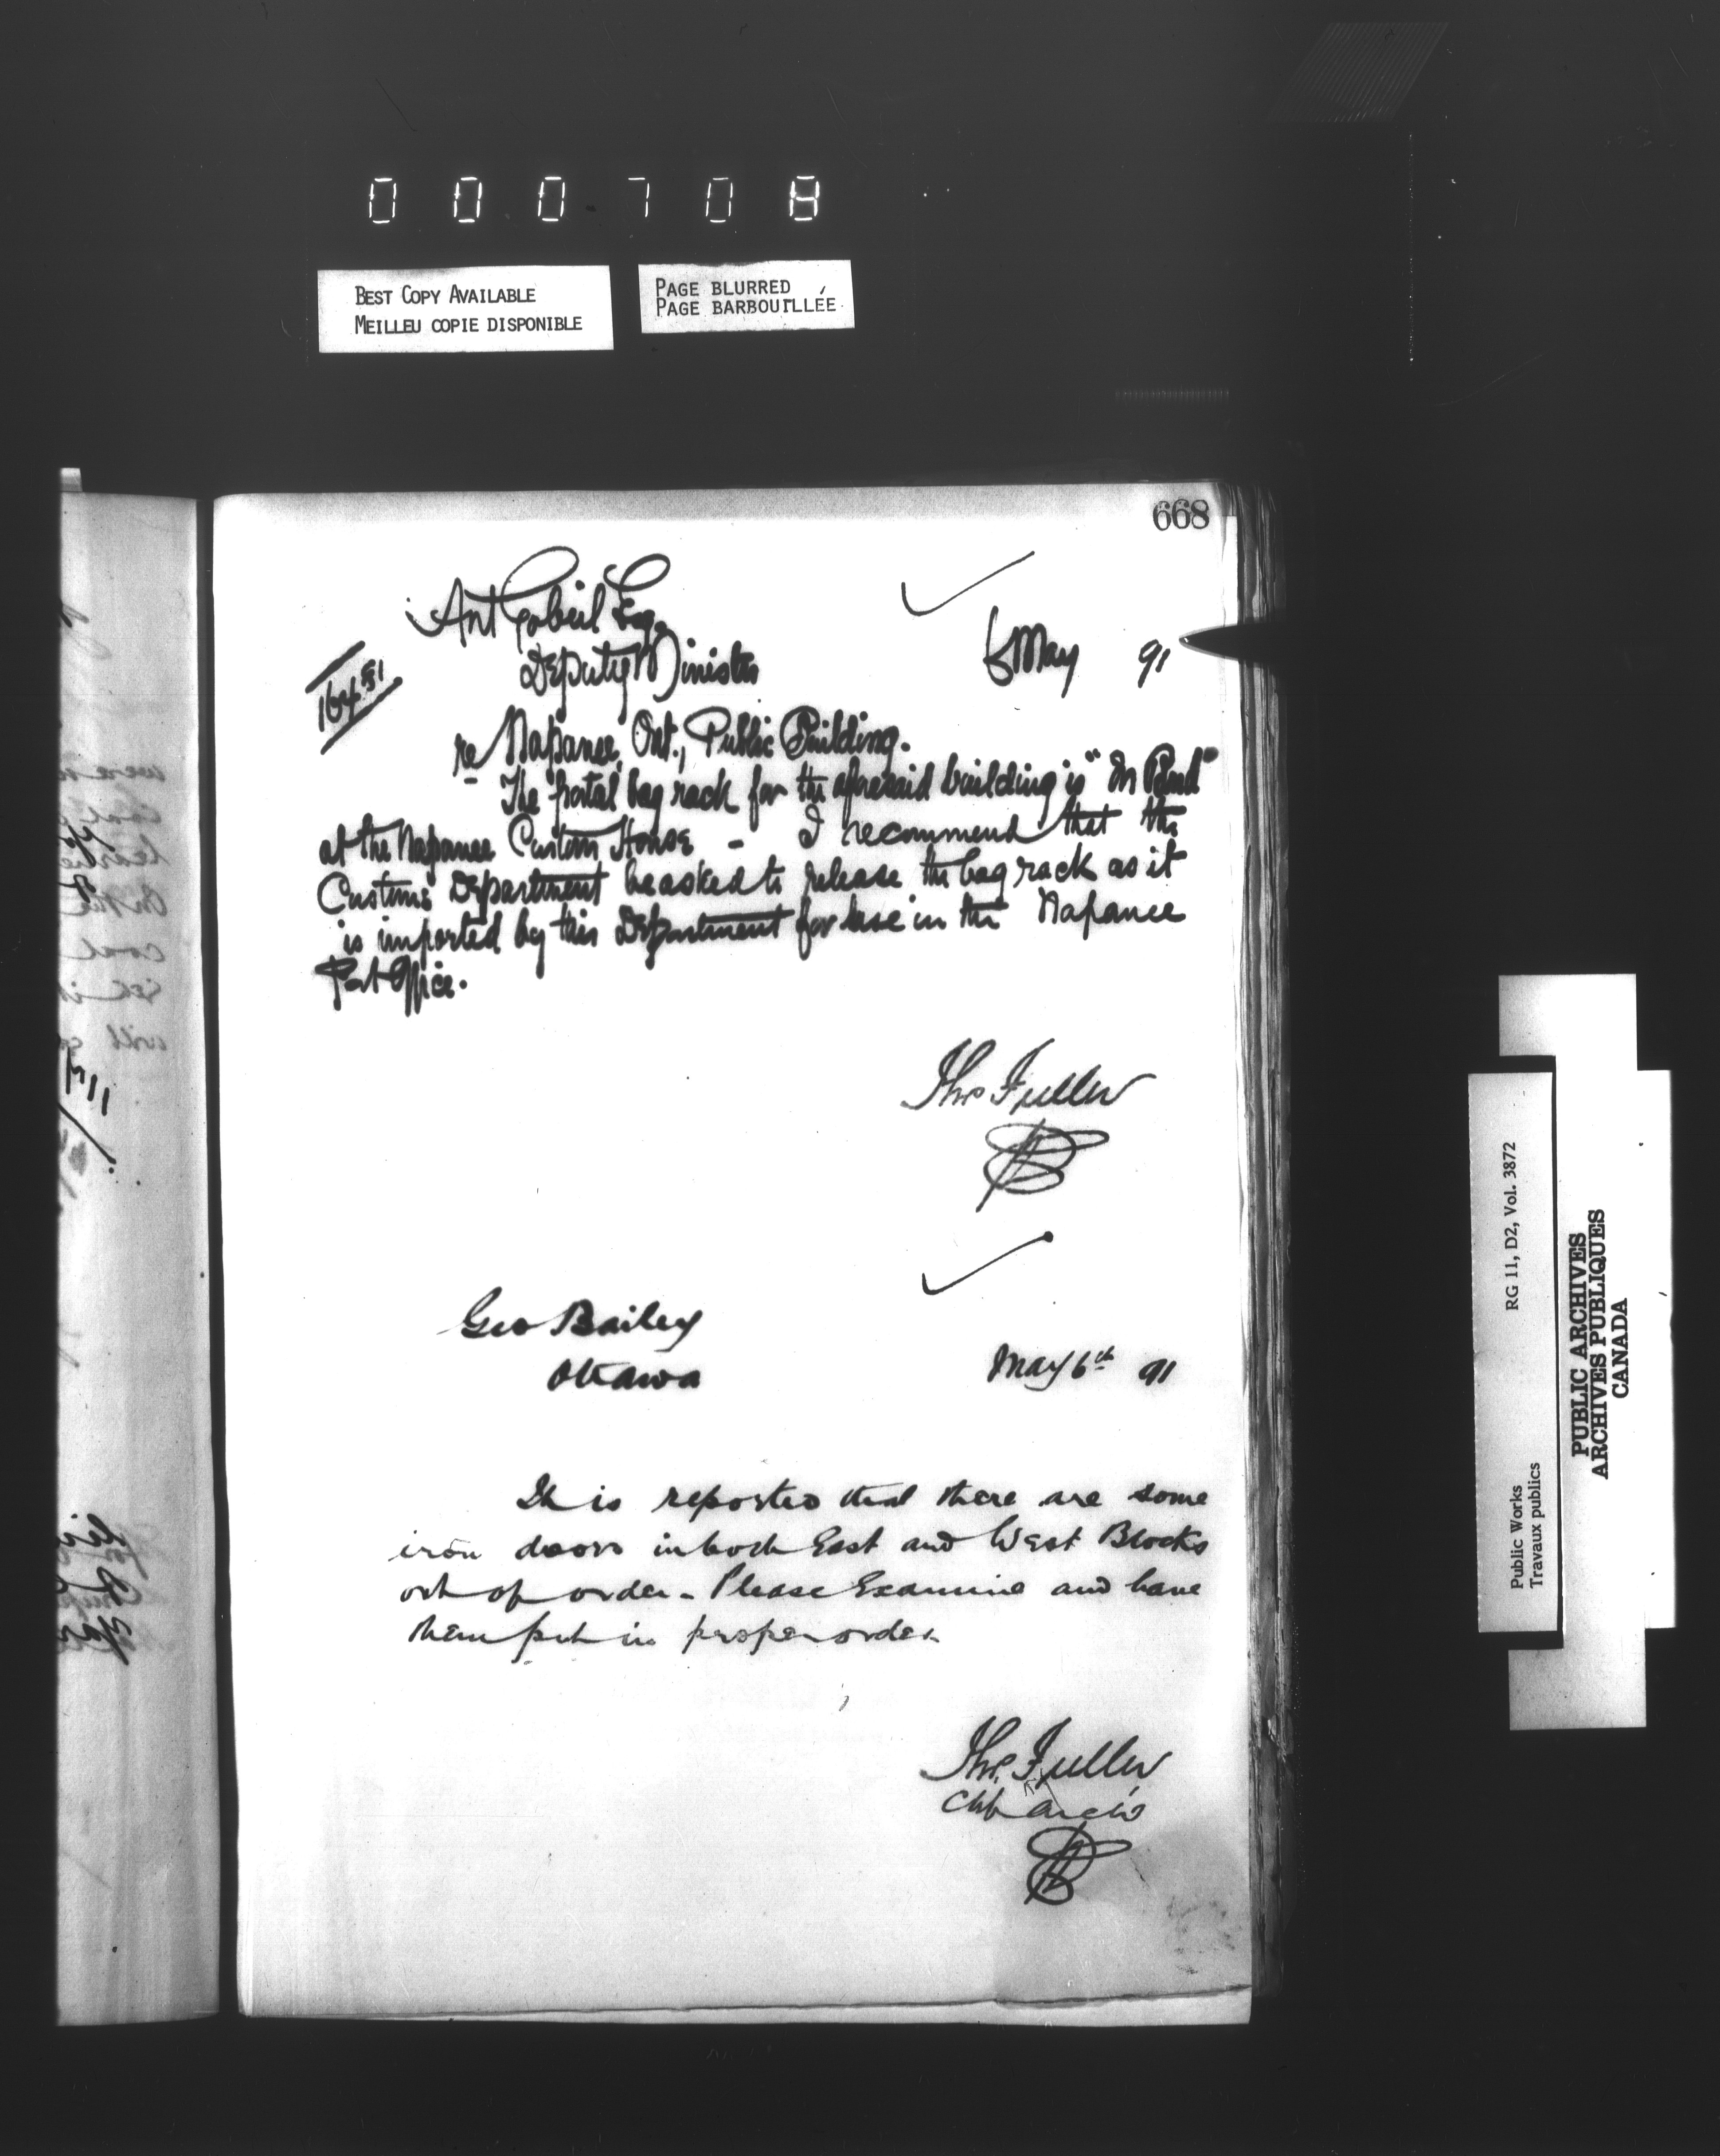 000708
BEST COPY AVAILABLE
MEILLEU COPIE DISPONIBLE
PAGE BLURRED
PAGE BARBOUILLÉE
668
Ant Gobeil Esq.
Deputy Minister
6 May 91
re Napanee, Ont., Public Building.
The postal bag rack for the aforesaid building is "In Bond"
at the Napanee Custom House - I recommend that the
Customs Department be asked to release the bag rack as it
is imported by this Department for use in the Napanee
Post Office.
Thos Fuller
Geo Bailey
Ottawa
May 6th 91
It is reported that there are some
iron doors in both East and West Blocks
out of order - Please Examine and have
them put in proper order.
Thos. Fuller
Chf Arch't
Public Works
Travaux publics
RG 11, D2, Vol. 3872
PUBLIC ARCHIVES
ARCHIVES PUBLIQUES
CANADA